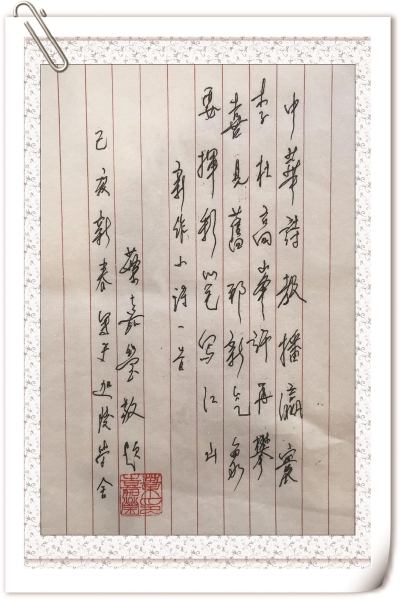 中華詩教播瀛寰
李杜高峯許再攀
喜見舊邦新气象
要揮彩笔寫江山
新作小詩一首
葉嘉瑩敬題
己亥新春寫于迦陵學舍